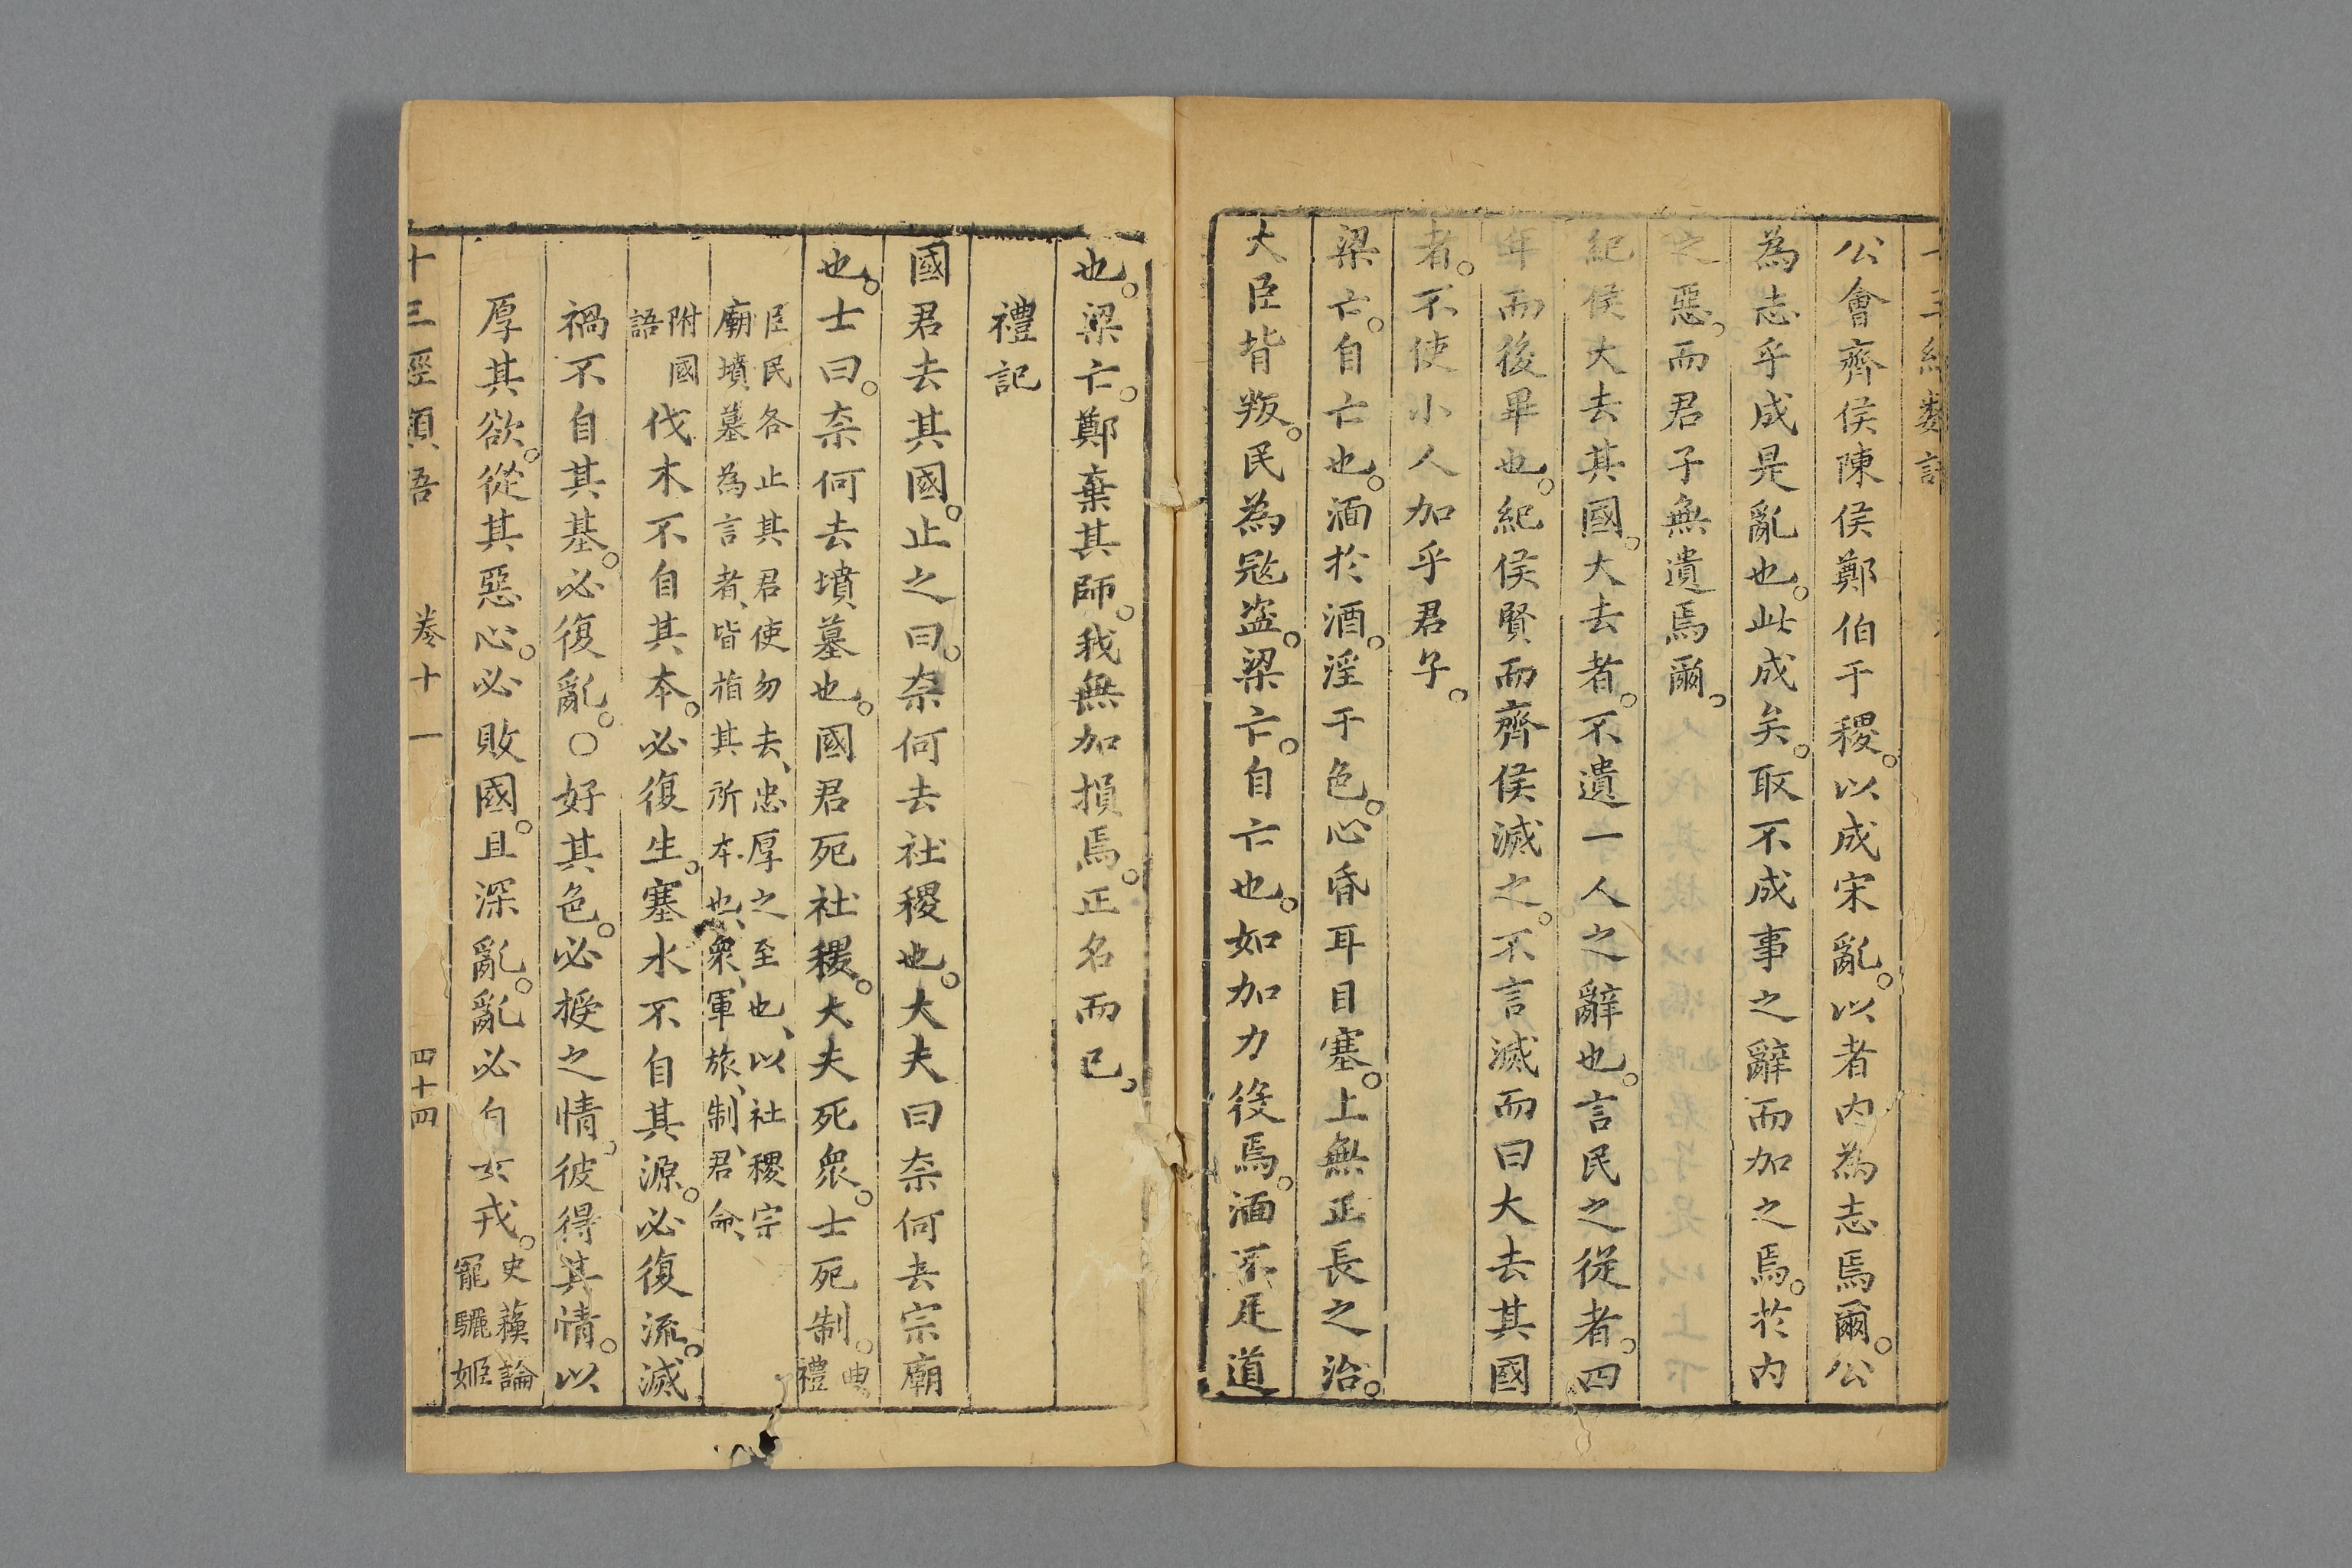 公會齊侯陳侯鄭伯于稷。以成宋亂。以者內為志焉爾。公
為志乎成是亂也。此成矣。取不成事之辭而加之焉。於內
之惡。而君子無遺焉爾。
紀侯大去其國。大去者。不遺一人之辭也。言民之從者。四
年而後畢也。紀侯賢而齊侯滅之。不言滅而曰大去其國
者。不使小人加乎君子。
梁亡。自亡也。湎於酒。淫于色。心昏耳目塞。上無正長之治。
大臣背叛。民為寇盜。梁亡。自亡也。如加力役焉。湎不足道
也。梁亡。鄭棄其師。我無加損焉。正名而已。
禮記
國君去其國。止之曰。奈何去社稷也。大夫曰奈何去宗廟
也。士曰。奈何去墳墓也。國君死社稷。大夫死衆。士死制。曲禮
臣民各止其君使勿去、忠厚之至也、以社稷宗
廟墳墓為言者、皆指其所本也、衆、軍旅、制、君命、
附國語
伐木不自其本。必復生。塞水不自其源。必復流。滅
禍不自其基。必復亂。○好其色。必授之情。彼得其情。以
厚其欲。從其惡心。必敗國。且深亂。亂必自女戎。史蘇論寵驪姬
十三經類語 卷十一 四十四